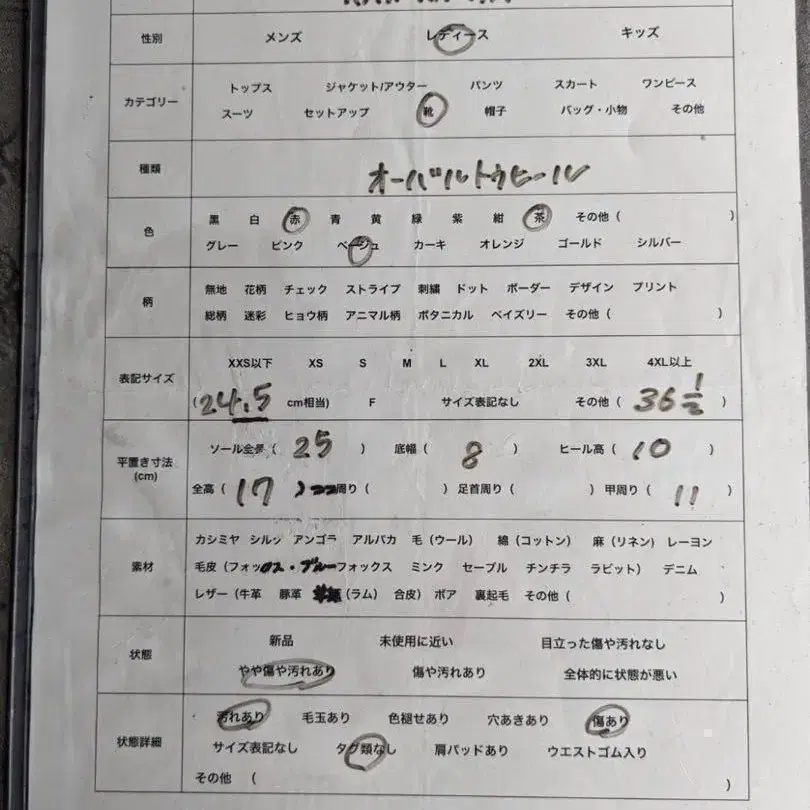 性別 メンズ レディース キッズ
カテゴリー トップス ジャケット/アウター パンツ スカート ワンピース
スーツ セットアップ 靴 帽子 バッグ・小物 その他
種類 オーバルトゥヒール
色 黒 白 赤 青 黄 緑 紫 紺 茶 その他 ( )
グレー ピンク ベージュ カーキ オレンジ ゴールド シルバー
柄 無地 花柄 チェック ストライプ 刺繍 ドット ボーダー デザイン プリント
総柄 迷彩 ヒョウ柄 アニマル柄 ボタニカル ペイズリー その他 ( )
表記サイズ XXS以下 XS S M L XL 2XL 3XL 4XL以上
(24.5 cm相当) F サイズ表記なし その他 ( 36 1/2 )
平置き寸法 (cm) ソール全長 ( 25 ) 底幅 ( 8 ) ヒール高 ( 10 )
全高 ( 17 ) 周り ( ) 足首周り ( ) 甲周り ( 11 )
素材 カシミヤ シルク アンゴラ アルパカ 毛 (ウール) 綿 (コットン) 麻 (リネン) レーヨン
毛皮 (フォックス・ブルーフォックス ミンク セーブル チンチラ ラビット) デニム
レザー (牛革 豚革 (ラム) 合皮) ボア 裏起毛 その他 ( )
状態 新品 未使用に近い 目立った傷や汚れなし
やや傷や汚れあり 傷や汚れあり 全体的に状態が悪い
状態詳細 汚れあり 毛玉あり 色褪せあり 穴あきあり 傷あり
サイズ表記なし タグ類なし 肩パッドあり ウエストゴム入り
その他 ( )